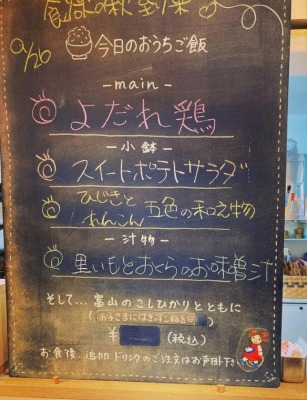 食欲の秋
9/26
今日のおうちご飯
-main-
よだれ鶏
-小鉢-
スイートポテトサラダ
ひじきと
れんこん 五色の和え物
-汁物-
里いもとおくらのお味噌汁
そして… 富山のこしひかりとともに
¥ (税込)
お食後、追加ドリンクのご注文はお声掛け下さい